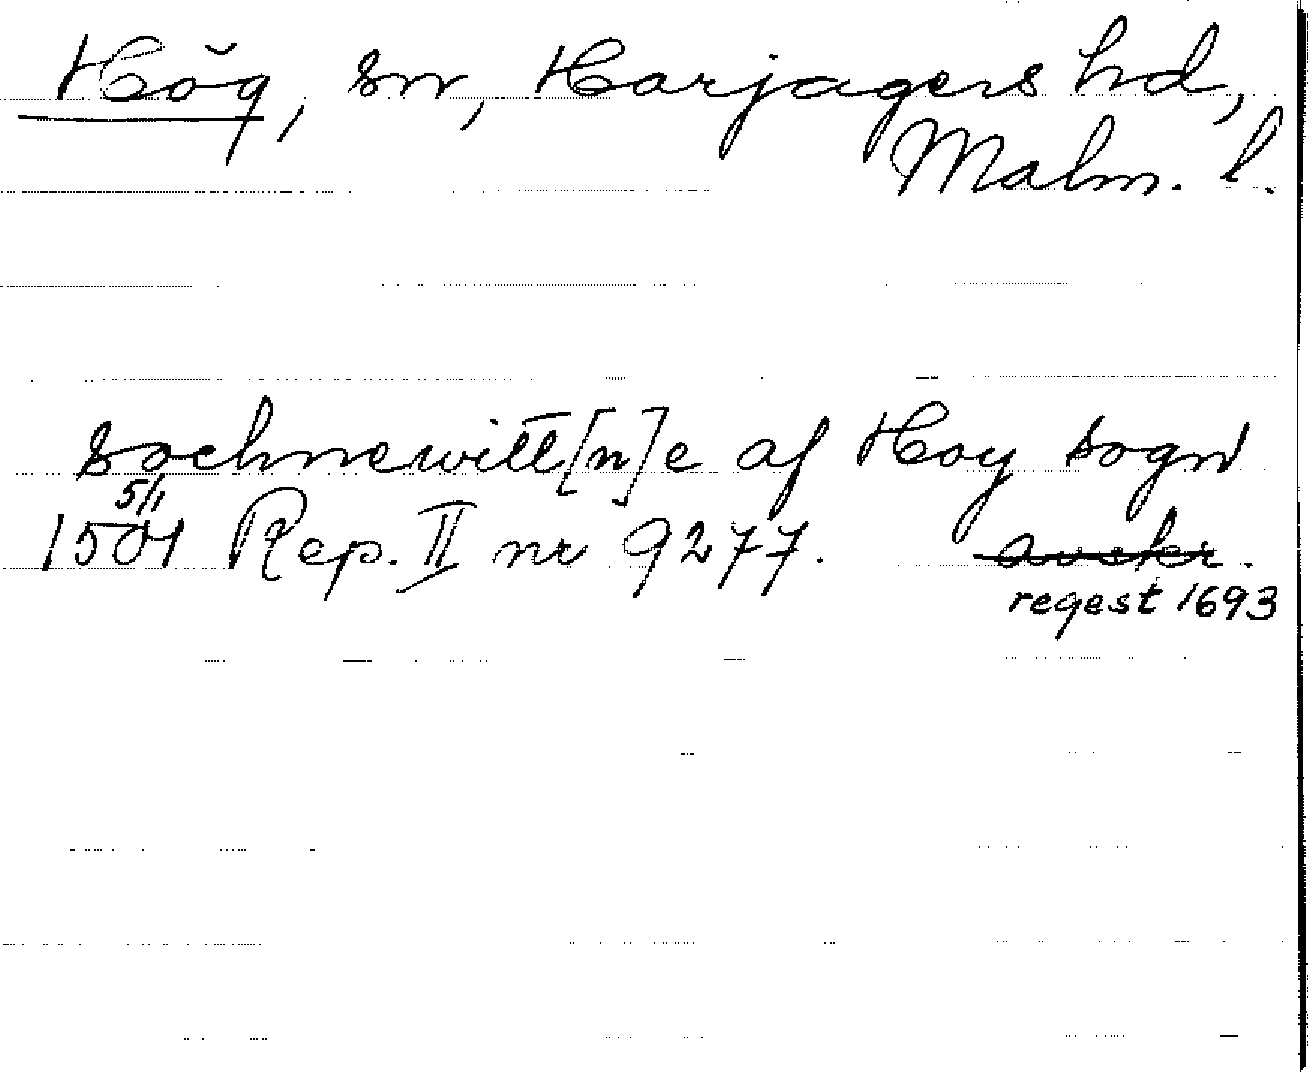 Hög, sn, Harjagers hd,
Malm. l.
sochnewitt[n]e af Hoy sogn
5/1
1501 Rep. II nr 9277. avskr.
regest 1693